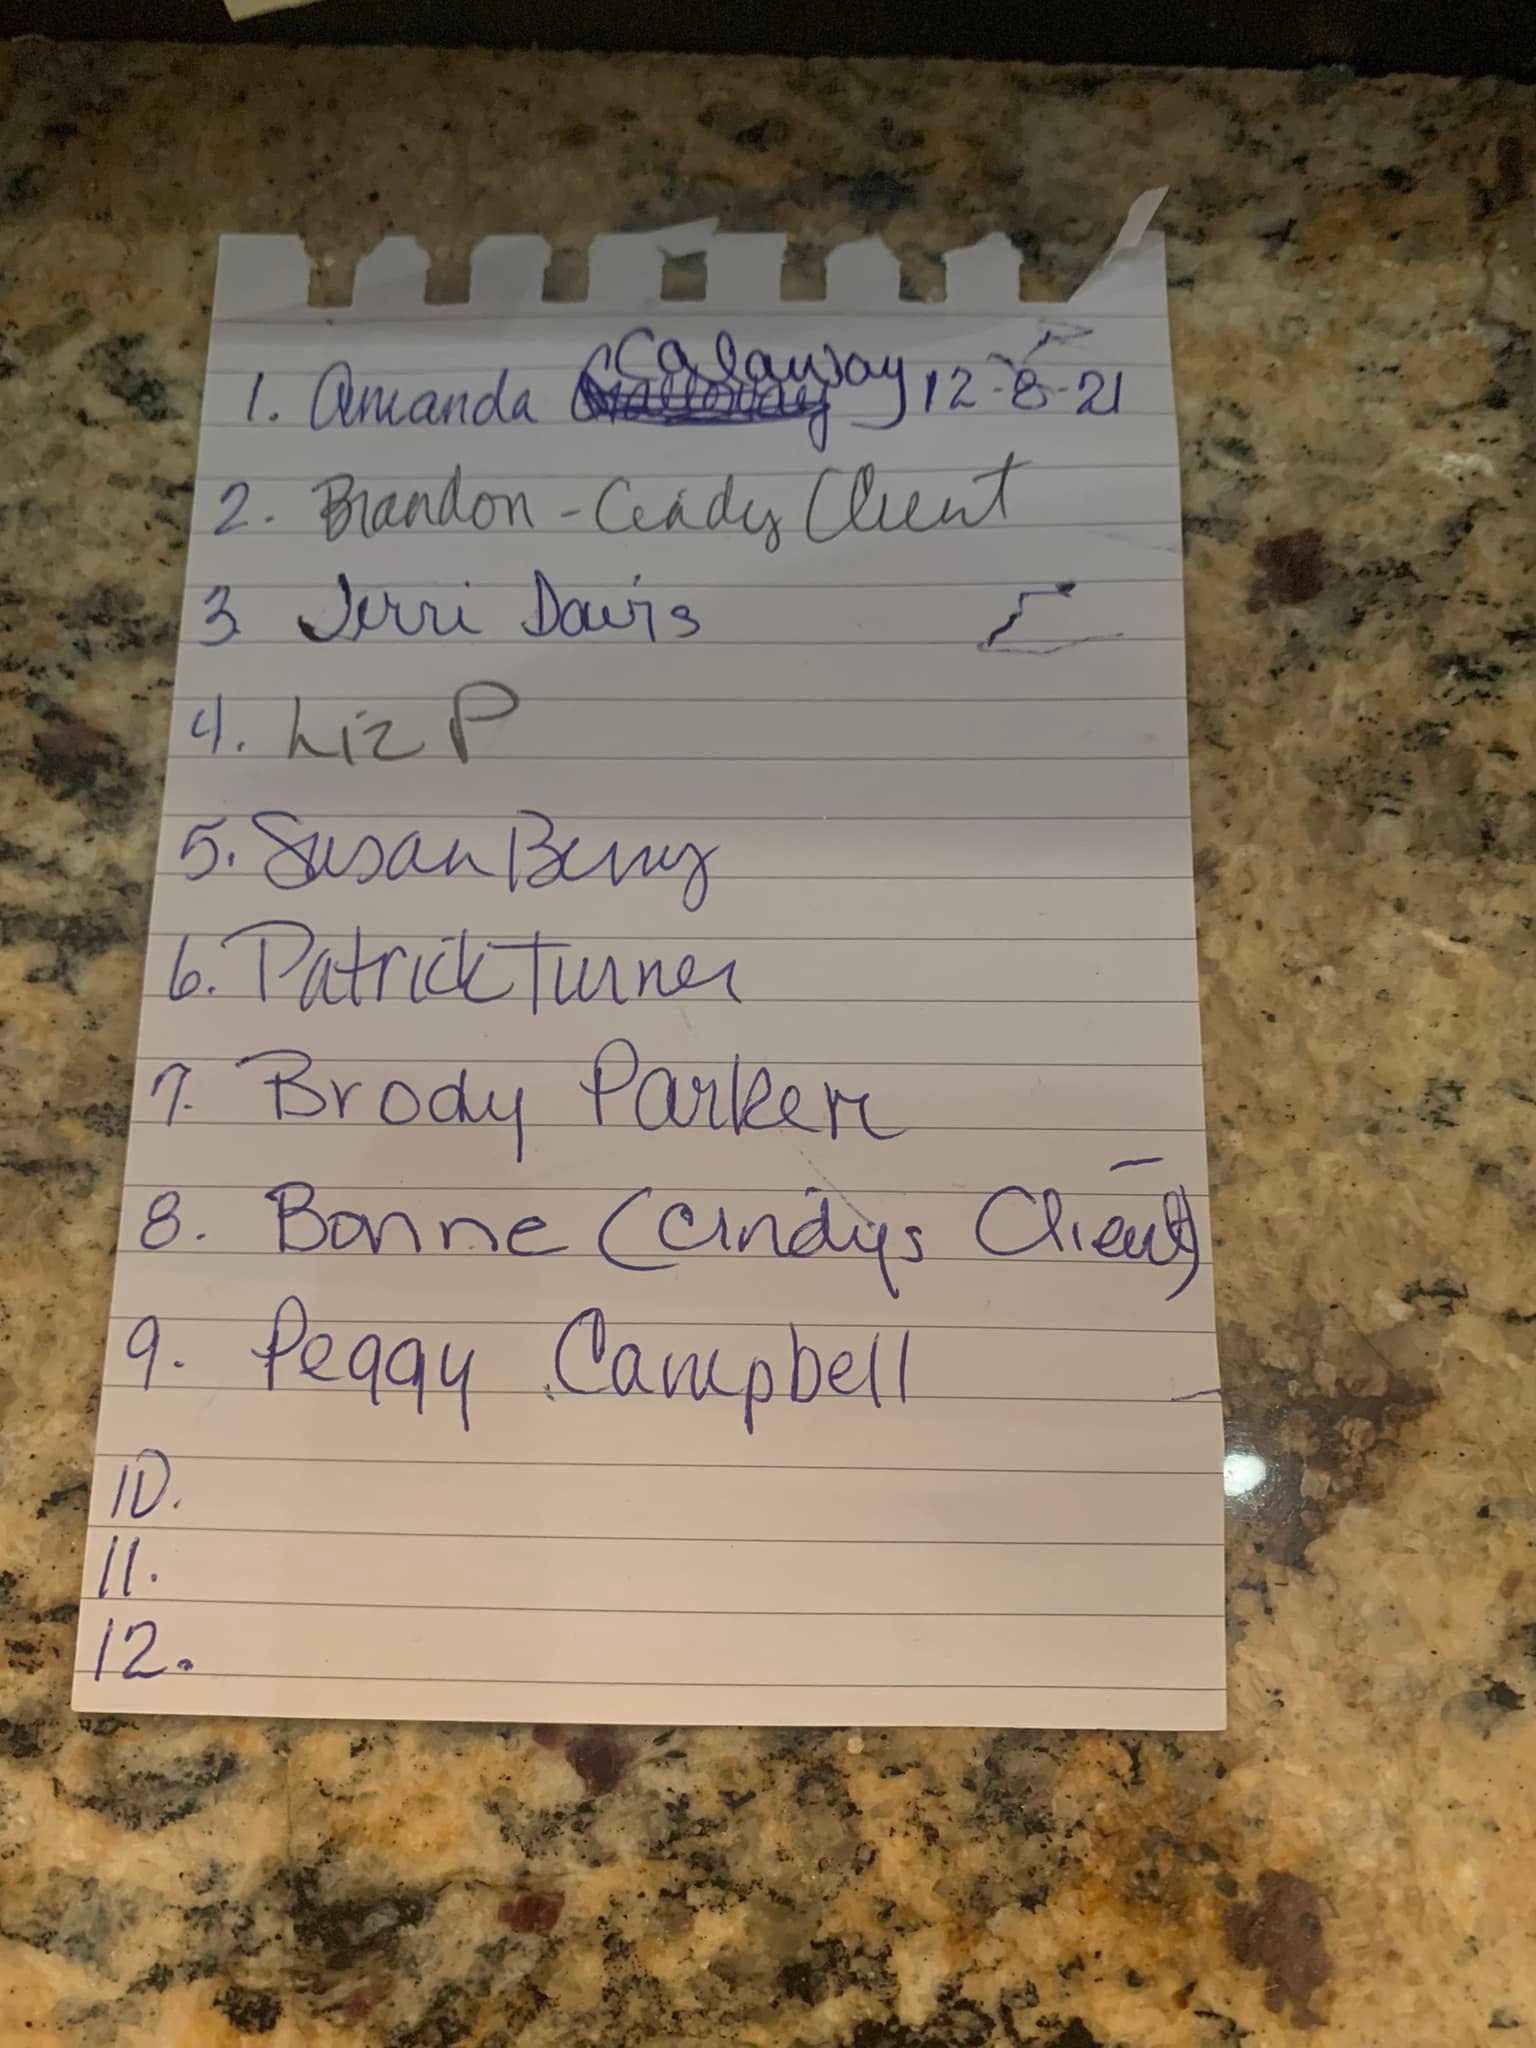 1. Amanda Calaway 12-8-21
2. Brandon - Cindy Client
3 Jerri Davis
4. Liz P
5. Susan Berry
6. Patrick Turner
7. Brody Parker
8. Bonne (Cindys Client)
9. Peggy Campbell
10.
11.
12.